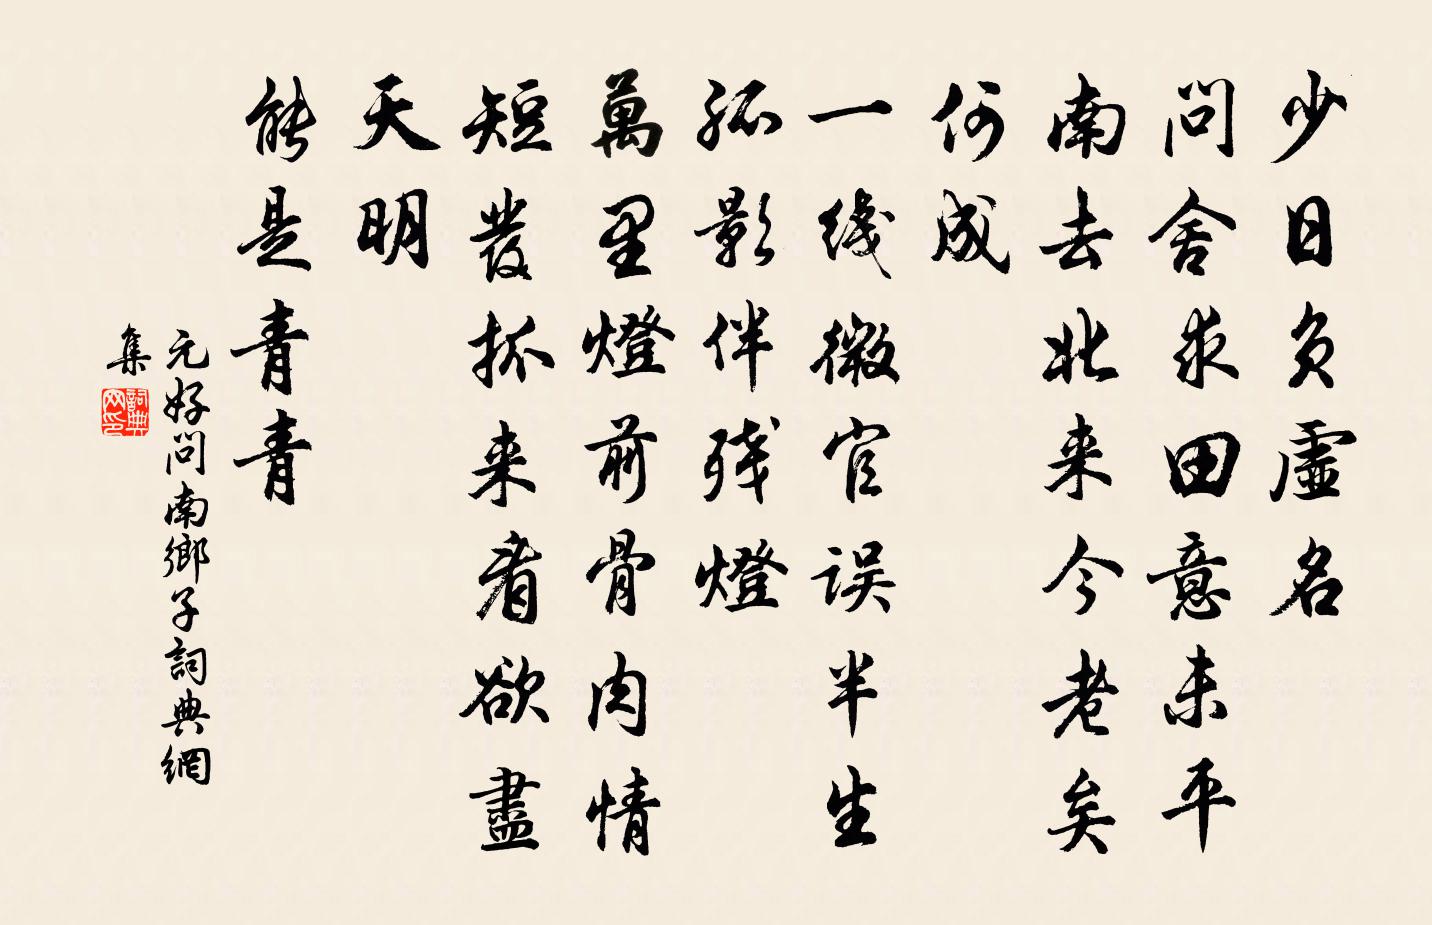 少日负虛名
問舍求田意未平
南去北来今老矣
何成
一线微官误半生
孤影伴残燈
萬里燈前骨肉情
短發抓来看欲盡
天明
能是青青
元好问南鄉子詞典網
集
詞典网印